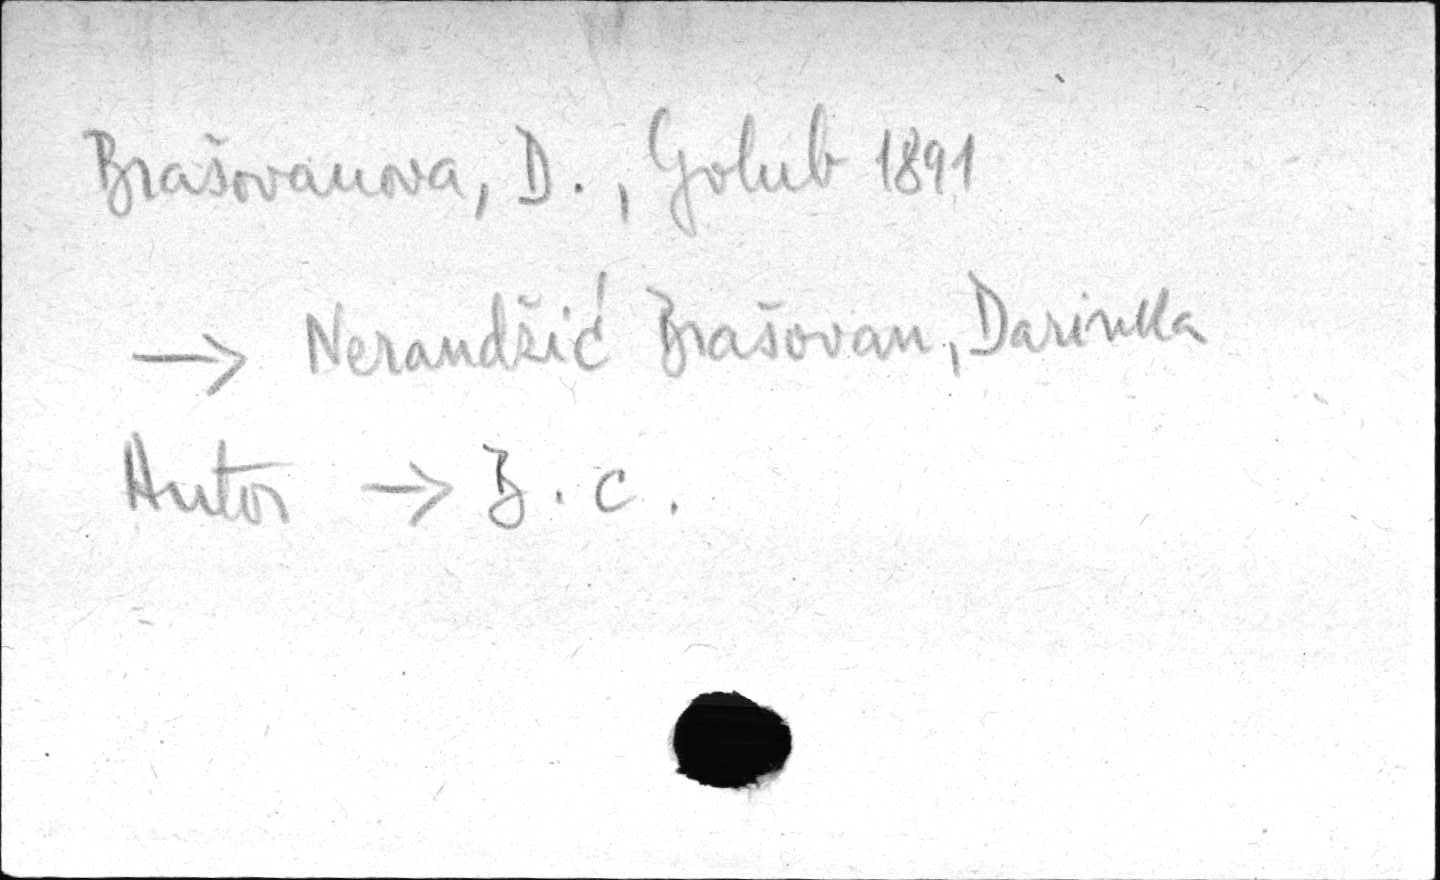 Brašovanova, D., Golub 1891
→ Nerandžić Brašovan, Darinka
Autor → B. c.